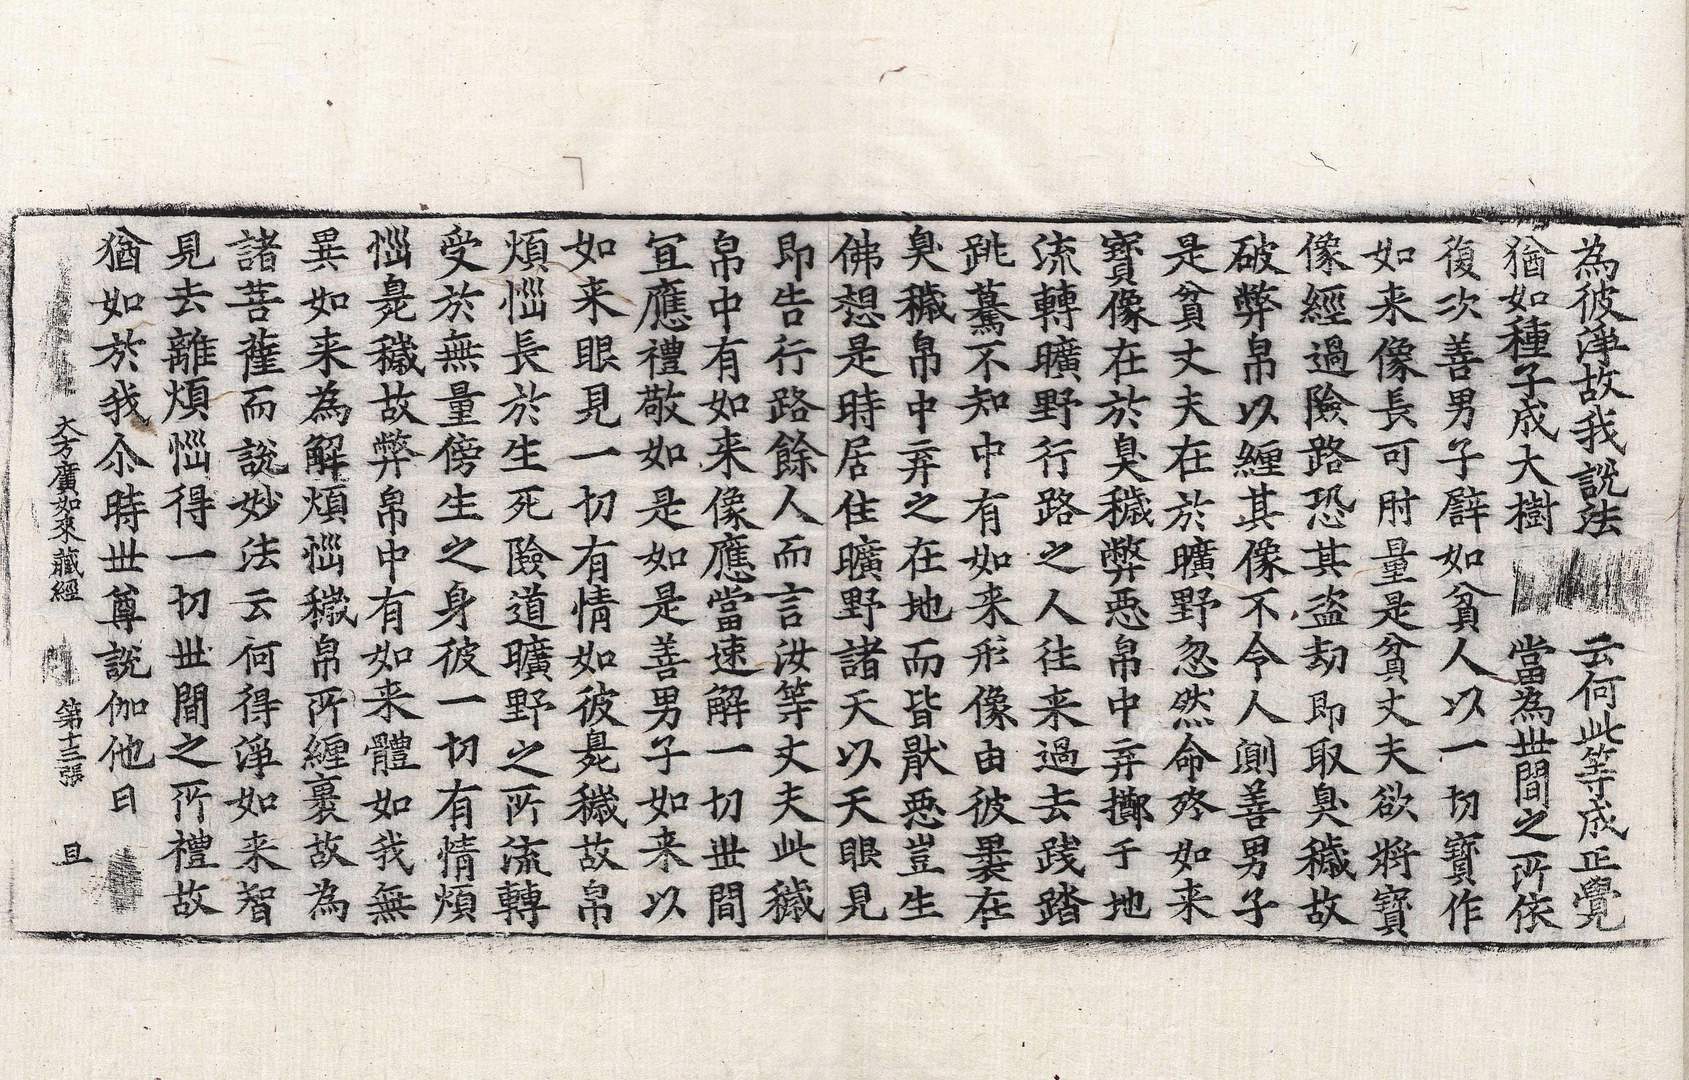 為彼淨故我說法　云何此等成正覺
猶如種子成大樹　當為世間之所依
復次善男子譬如貧人以一切寶作
如来像長可肘量是貧丈夫欲將寶
像經過險路恐其盗劫即取臭穢故
破弊帛以纏其像不令人測善男子
是貧丈夫在於曠野忽然命終如来
寶像在於臭穢弊惡帛中弃擲于地
流轉曠野行路之人往来過去踐踏
跳驀不知中有如来形像由彼裹在
臭穢帛中弃之在地而皆厭惡豈生
佛想是時居住曠野諸天以天眼見
即告行路餘人而言汝等丈夫此穢
帛中有如来像應當速解一切世間
宜應禮敬如是如是善男子如来以
如来眼見一切有情如彼臭穢故帛
煩惱長於生死險道曠野之所流轉
受於無量傍生之身彼一切有情煩
惱臭穢故弊帛中有如来體如我無
異如来為解煩惱穢帛所纏裹故為
諸菩薩而說妙法云何得淨如来智
見去離煩惱得一切世間之所禮故
猶如於我尒時世尊說伽他曰
大方廣如來藏經　第十三張　旦